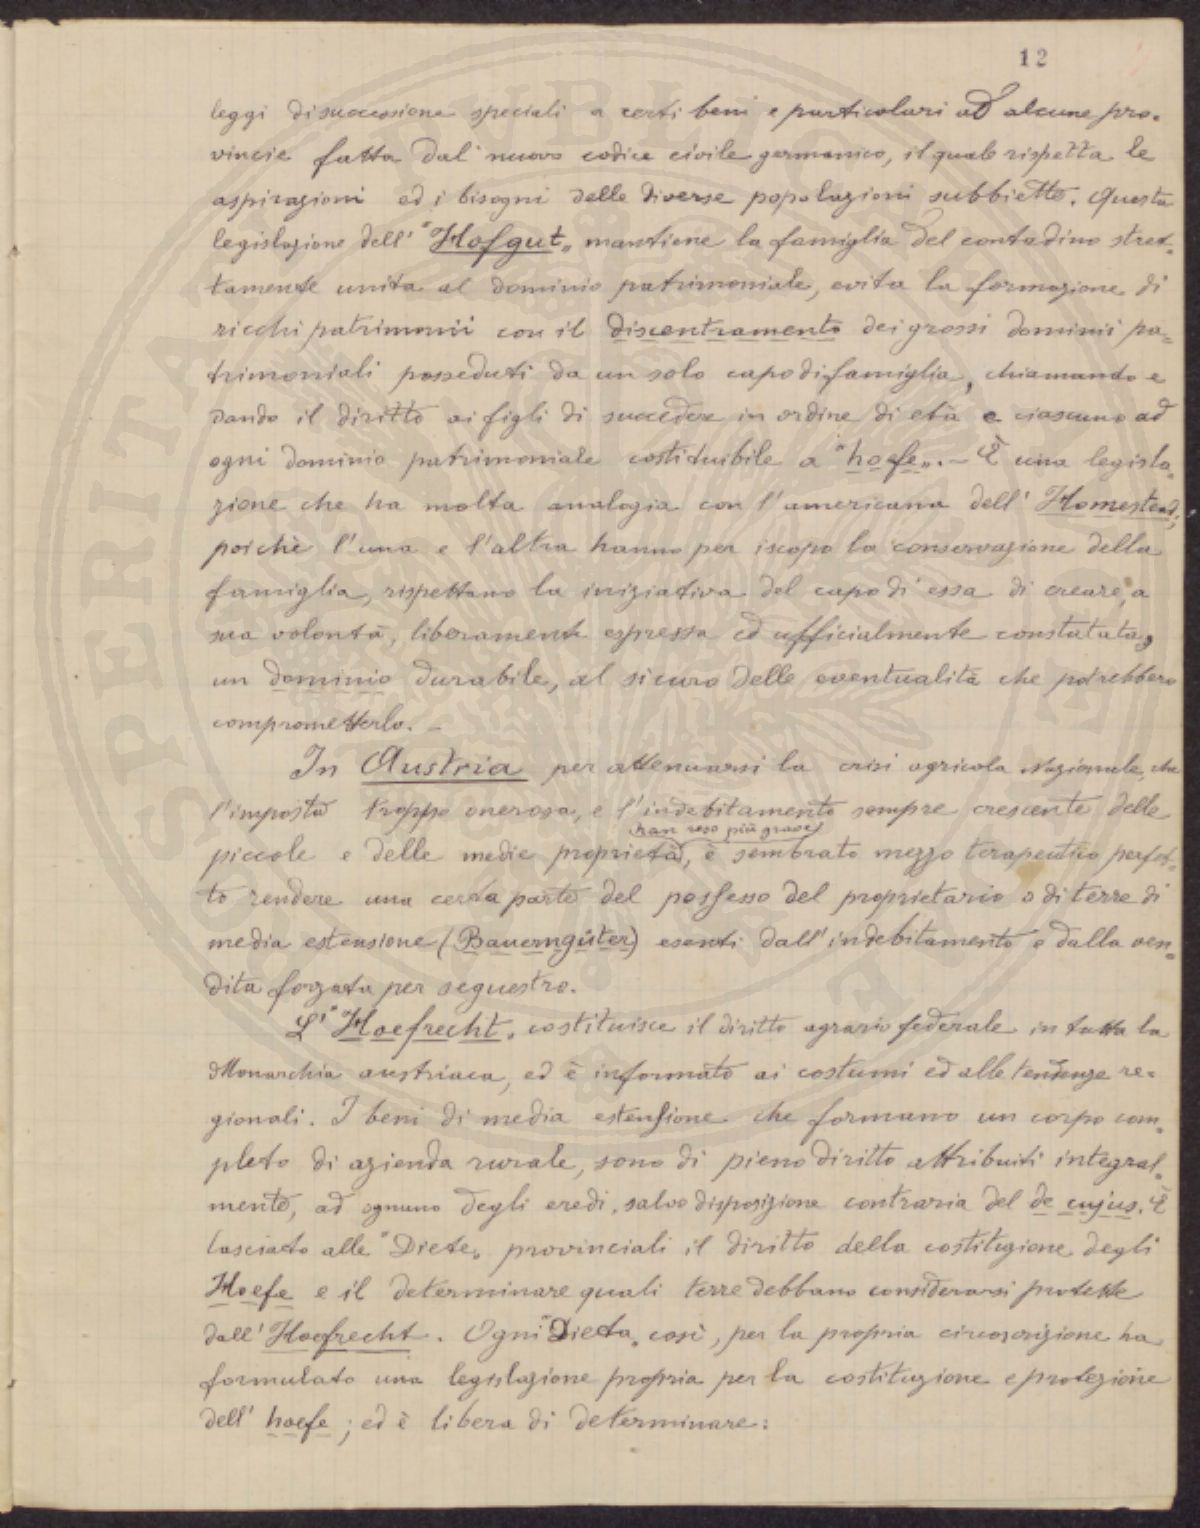 12
leggi di successione speciali a certi beni e particolari ad alcune pro-
vincie fatta dal nuovo codice civile germanico, il quale rispetta le
aspirazioni ed i bisogni delle diverse popolazioni subbiette. Questa
legislazione dell' "Hofgut„ mantiene la famiglia del contadino stret-
tamente unita al dominio patrimoniale, evita la formazione di
ricchi patrimonii con il discentramento dei grossi dominii pa-
trimoniali posseduti da un solo capo di famiglia, chiamando e
dando il diritto ai figli di succedere in ordine di età e ciascuno ad
ogni dominio patrimoniale costituibile a "hoefe„. - È una legisla-
zione che ha molta analogia con l'americana dell' Homestead;
poichè l'una e l'altra hanno per iscopo la conservazione della
famiglia, rispettano la iniziativa del capo di essa di creare, a
sua volontà, liberamente espressa ed ufficialmente constatata,
un dominio durabile, al sicuro delle eventualità che potrebbero
comprometterlo. -
In Austria per attenuarsi la crisi agricola Nazionale, che
l'imposta troppo onerosa, e l'indebitamento sempre crescente delle
han reso più grave
piccole e delle medie proprietà, è sembrato mezzo terapeutico perfet-
to rendere una certa parte del possesso del proprietario o di terre di
media estensione (Bauerngüter) esenti dall'indebitamento e dalla ven-
dita forzata per seguestro.
L' "Hoefrecht„ costituisce il diritto agrario federale in tutta la
Monarchia austriaca, ed è informato ai costumi ed alle tendenze re-
gionali. I beni di media estensione che formano un corpo com-
pleto di azienda rurale, sono di pieno diritto attribuiti integral-
mente, ad ognuno degli eredi, salvo disposizione contraria del de cujus. È
lasciato alle "Diete„ provinciali il diritto della costituzione degli
Hoefe e il determinare quali terre debbano considerarsi protette
dall' Hoefrecht. Ogni "Dieta„ così, per la propria circoscrizione ha
formulato una legislazione propria per la costituzione e protezione
dell' hoefe; ed è libera di determinare: